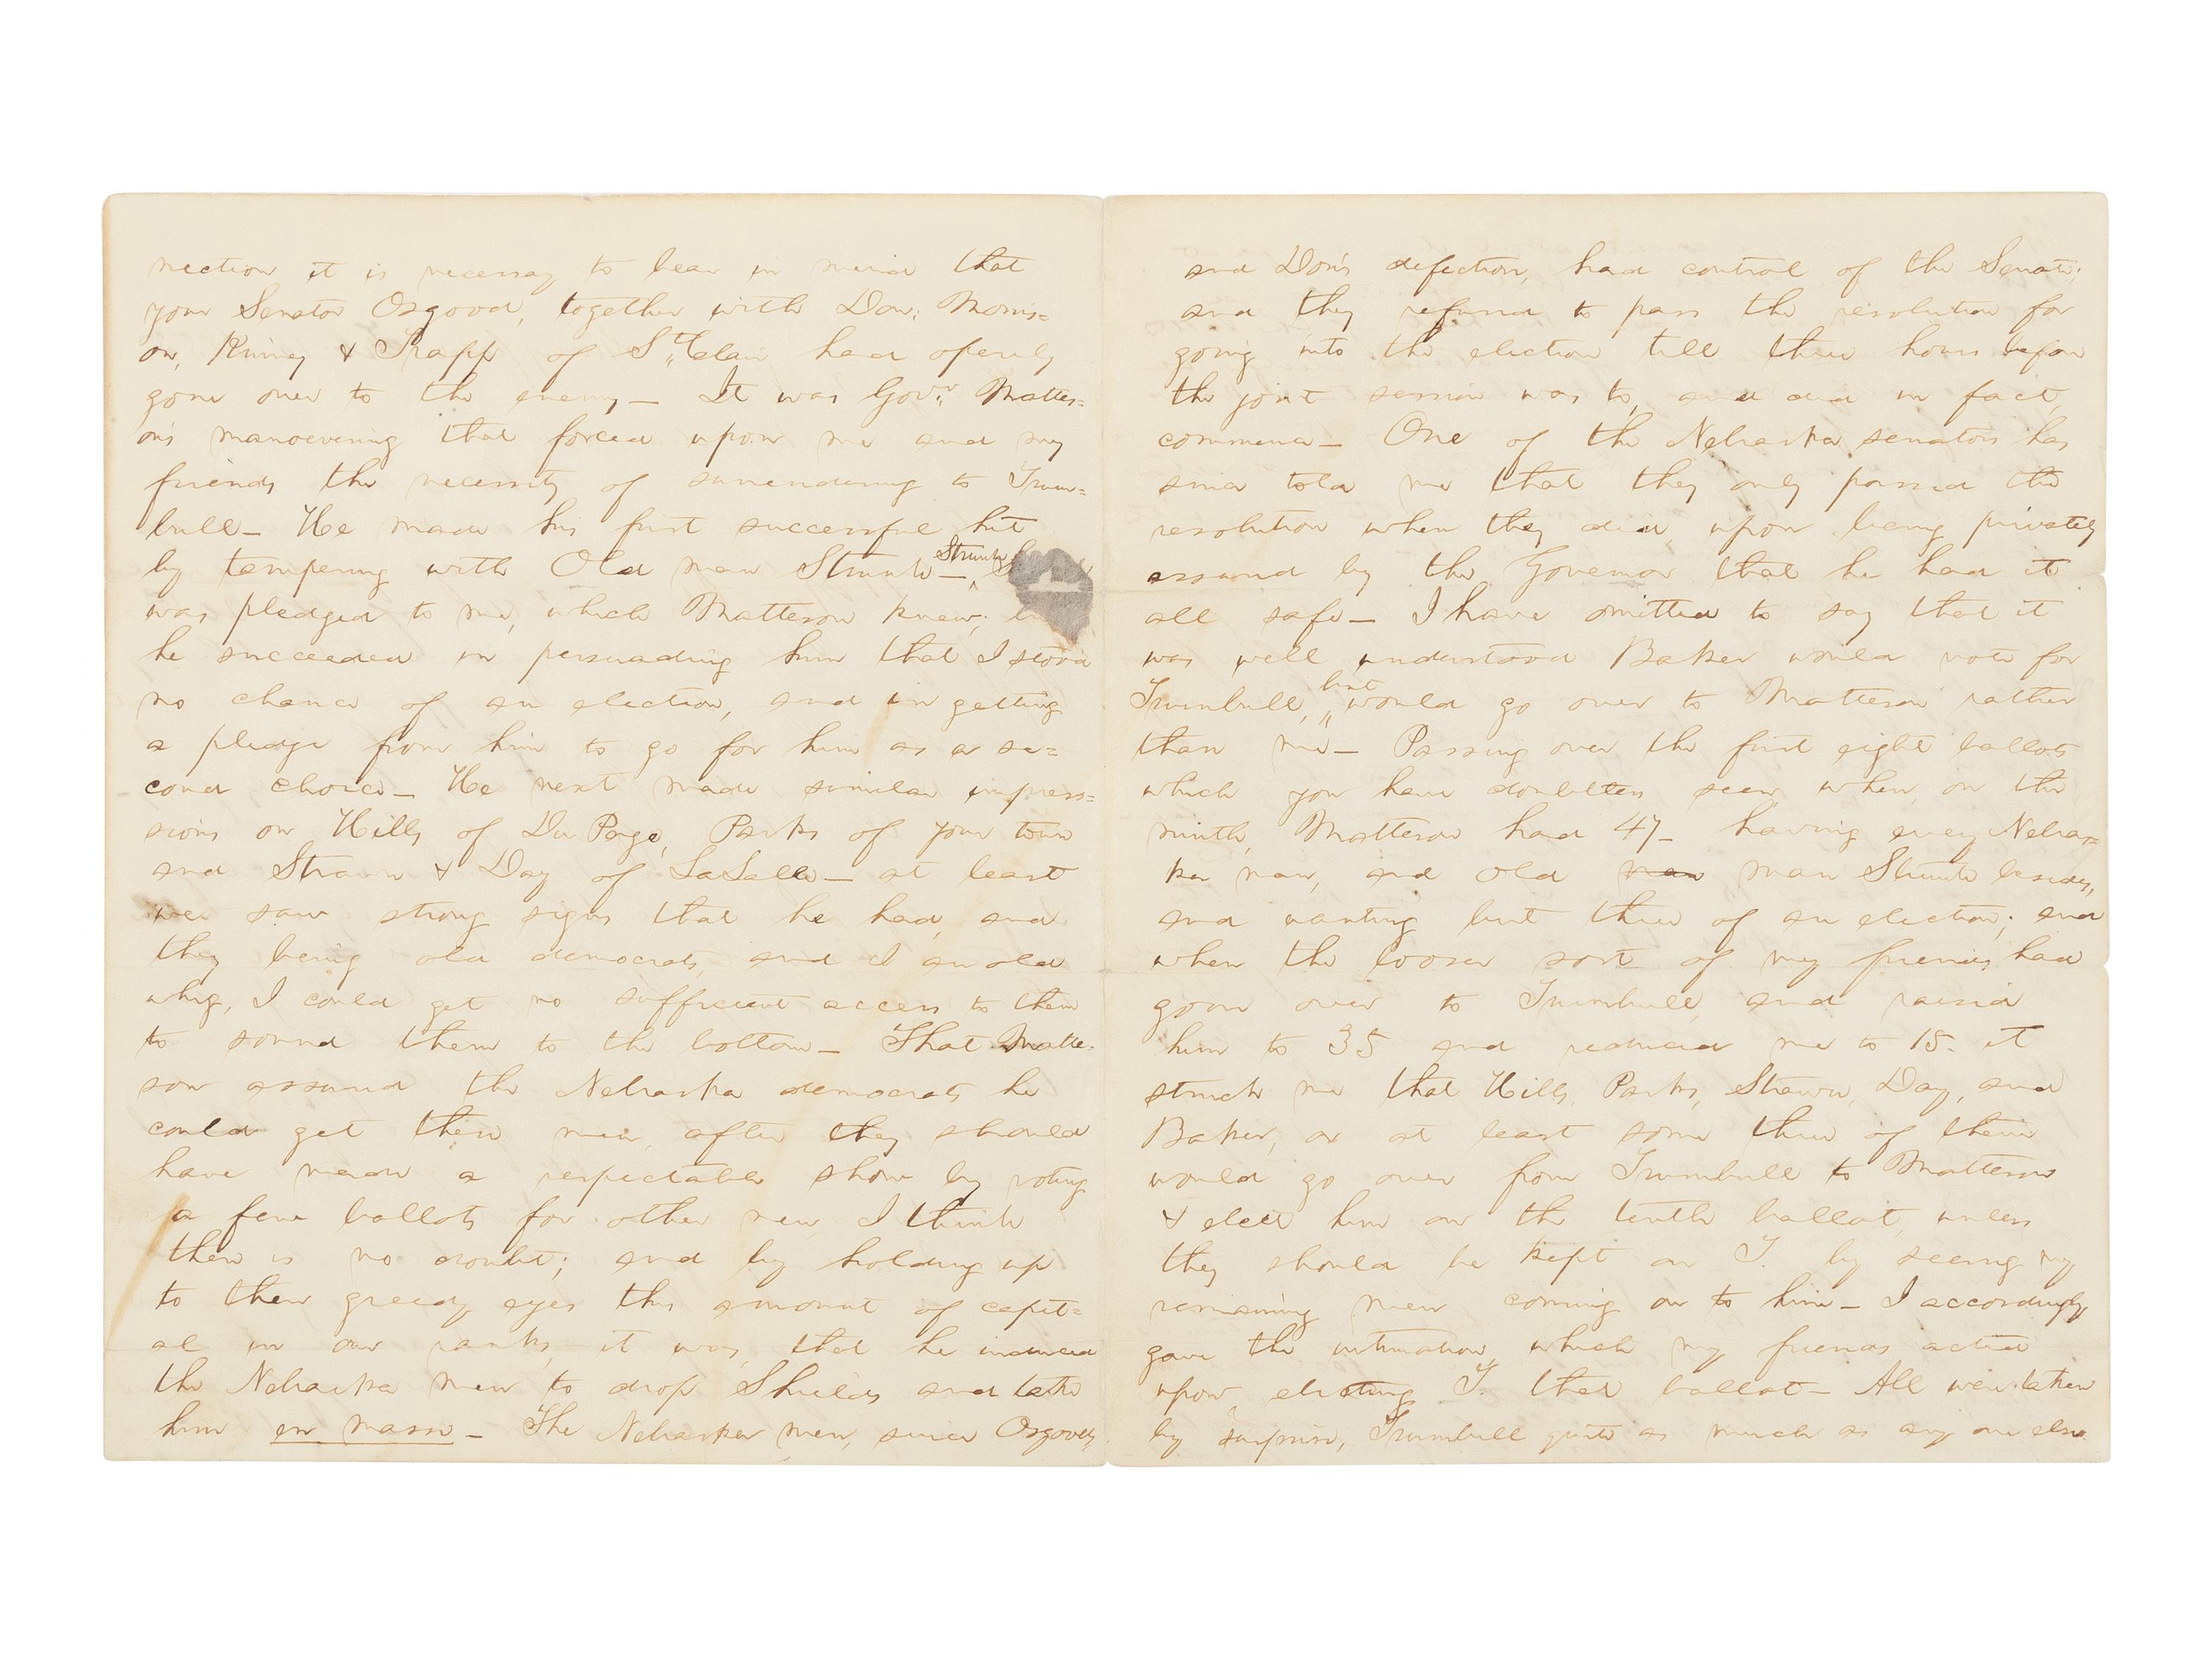 nection it is necessary to bear in mind that
your Senator Osgood, together with Don. Morris=
on, Kinney & Trapp of St. Clair had openly
gone over to the enemy— It was Govr. Matte-
on's manoevering that forced upon me and my
friends the necessity of surrendering to Trum=
bull— He made his first successful hit
by tempering with Old man Strunk— Strunk
was pledged to me, which Matteson knew;
he succeeded in persuading him that I stood
no chance of an election, and in getting
a pledge from him to go for him as a se=
cond choice— He next made similar impres=
sions on Hills of Du Page, Parks of your town
and Strawn & Day of LaSalle— at least
we saw strong signs that he had, and
they being old democrats, and I an old
whig, I could get no sufficient access to them
to sound them to the bottom— That Matte-
son assured the Nebraska democrats he
could get their men, after they should
have made a respectable show by voting
a few ballots for other men, I think
there is no doubt; and by holding up
to their greedy eyes this amount of capit=
al in our ranks, it was, that he induced
the Nebraska men to drop Shields and take
him en masse— The Nebraska men, since Osgood's
and Don's defection, had control of the Senate;
and they refused to pass the resolution for
going into the election till three hours before
the joint session was to, and did in fact,
commence— One of the Nebraska senators has
since told me that they only passed the
resolution when they did, upon being privately
assured by the Governor that he had it
all safe— I have omitted to say that it
was well understood Baker would vote for
Trumbull, but would go over to Matteson rather
than me— Passing over the first eight ballots
which you have doubtless seen, when, on the
ninth, Matteson had 47— having every Nebras=
ka man, and old man man Strunk besides,
and wanting but three of an election; and
when the looser sort of my friends had
gone over to Trumbull, and raised
him to 35 and reduced me to 15. it
struck me that Hills, Parks, Strawn, Day, and
Baker, or at least some three of them
would go over from Trumbull to Matteson
& elect him on the tenth ballot, unless
they should be kept on T. by seeing my
remaining men coming on to him— I accordingly
gave the intimation which my friends acted
upon, electing T. that ballot— All were taken
by surprise, Trumbull quite as much as any one else